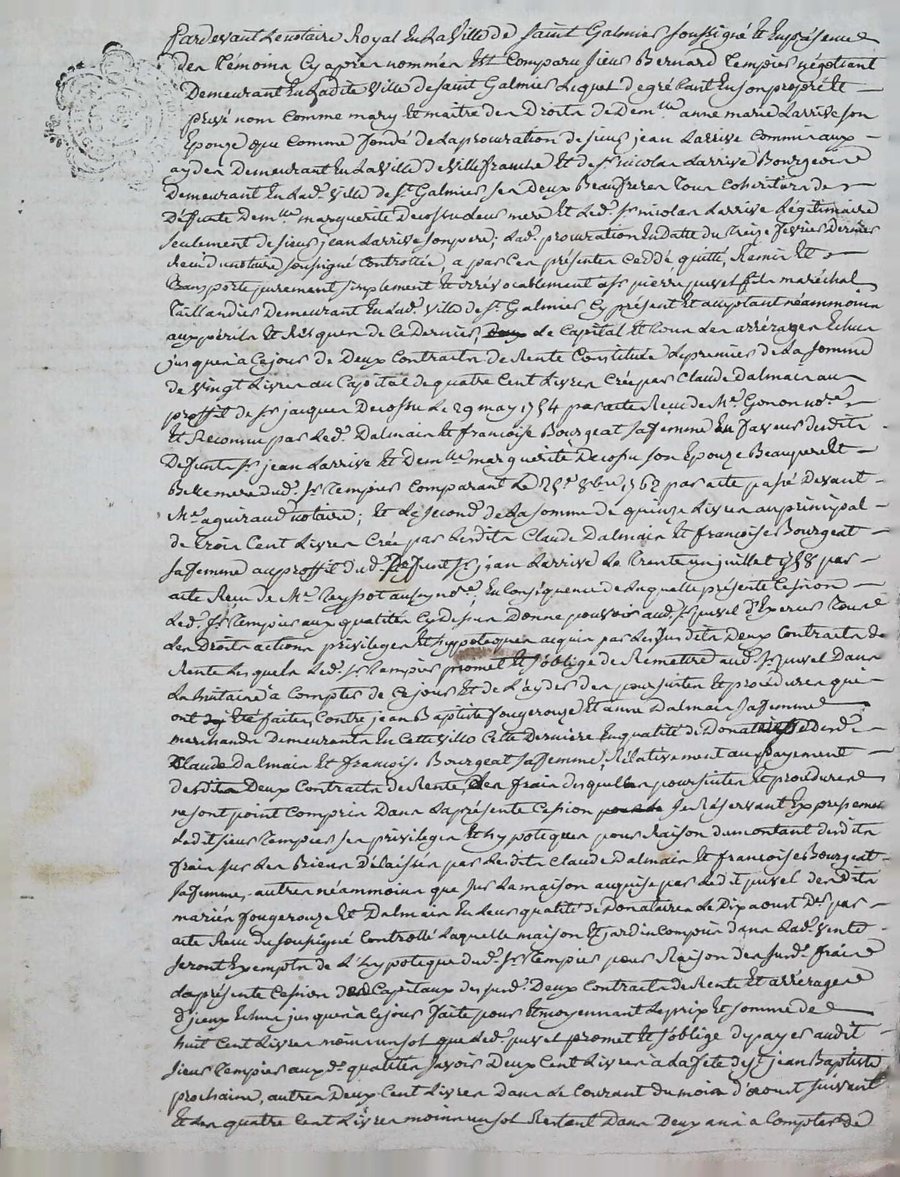 Pardevant Lenotaire Royal En La Ville de Saint Galmier soussigné Et En présence
des Temoins Cy apres nommés Est Comparu sieur Bernard Tempier négotiant
Demeurant En Ladite Ville de saint Galmier Lequel degré tant En son propre Et
privé nom Comme mary Et maitre des Droits de Dem.lle anne marie Larrive son
Epouze que Comme fondé de La procuration de sieur jean Larrive Commis aux
aydes Demeurant En La Ville de Villefranche Et de s.r nicolas Larrive Bourgeois
Demeurant En Lad.e Ville de S.t Galmier ses Deux Beaufreres Tous Cohéritiers de
Défunte Dem.lle marguerite Decossu Leur mere Et Led.t s.r nicolas Larrive Légitimaire
seulement de sieur jean Larrive son pere; Lad.e procuration En Datte du Treize fevrier Dernier
Recu du notaire soussigné Controllée, a par Ces présentes Ceddé, quitté, Remis Et
Transporté purement simplement Et irrévocablement a s.r pierre juvel fils maréchal
Taillandier Demeurant En Lad.e Ville de S.t Galmier Cy présent Et acceptant néammoins
aux périls Et Risques de Ce Dernier, Le Capital Et Tous Les arrérages Echus
jusques à Ce jour de Deux Contracts de Rente Constituée Le premier de La somme
de Vingt Livres au Capital de quatre Cent Livres Créé par Claude Dalmais au
proffit de s.r jacques Decossu Le 29 may 1754 par acte Recu de M.e Gonon no.re
Et Reconnu par Led.t Dalmais Et françoise Bourgeat sa femme En faveur desdits
Defunts s.r jean Larrive Et Dem.lle marguerite Decossu son Epouze Beaupere Et
Bellemere dud.t s.r Tempier Comparant Le 25.e 8bre 1762 par acte passé Devant
M.e aguiraud notaire; Et Le second de La somme de quinze Livres au principal
de Trois Cent Livres Créé par Lesdits Claude Dalmais Et françoise Bourgeat
sa femme au proffit dud.t Défunt s.r jean Larrive Le Trente un juillet 1758 par
acte Recu de M.e aussy no.re, En Conséquence de Laquelle présente Cession
Led.t s.r Tempier aux qualités Cy dessus Donne pouvoir aud.t s.r juvel D'Exercer Tous
Les Droits actions privileges Et hypoteques acquis par Lesusdits Deux Contracts de
Rente Lesquels Led.t s.r Tempier promet Et s'oblige de Remettre aud.t s.r juvel Dans
La huitaine à Compter de Ce jour Et de L'ayder des poursuites Et procédures que
ont Eté faites, Contre jean Baptiste fougerouze Et anne Dalmais sa femme
marchands Demeurants En Cette Ville Cette Derniere En qualité de Donataire desd.ts
Claude Dalmais Et françoise Bourgeat sa femme, Relativement au payement
desdits Deux Contracts de Rente, Les frais desquelles poursuites Et procédures
ne sont point Compris Dans La présente Cession se Réservant Expressement
Ledit sieur Tempier ses privileges Et hypoteques pour Raison du montant desdits
frais sur Les Biens Délaissés par Lesdits Claude Dalmais Et françoise Bourgeat
sa femme, autres néammoins que sur La maison acquise par Ledit juvel desdits
mariés fougerouze Et Dalmais En Leur qualité de Donataires Le Dix aoust D.er par
acte Recu du soussigné Controllé Laquelle maison Et jardin Compris dans Lad.e Vente
seront Exempts de L'hypoteque dud.t s.r Tempier pour Raison des susd.ts frais
La présente Cession des Capitaux des susd.ts Deux Contracts de Rente Et arrérages
d'jceux Echus jusques à Ce jour faite pour Et moyennant Le prix Et somme de
huit Cent Livres moins un sol que Led.t juvel promet Et s'oblige de payer audit
sieur Tempier auxd.tes qualités savoir Deux Cent Livres à La fete de S.t jean Baptiste
prochaine, autres Deux Cent Livres Dans Le Courant du mois d'aoust suivant
Et Les quatre Cent Livres moins un sol Restant Dans Deux ans à Compter de